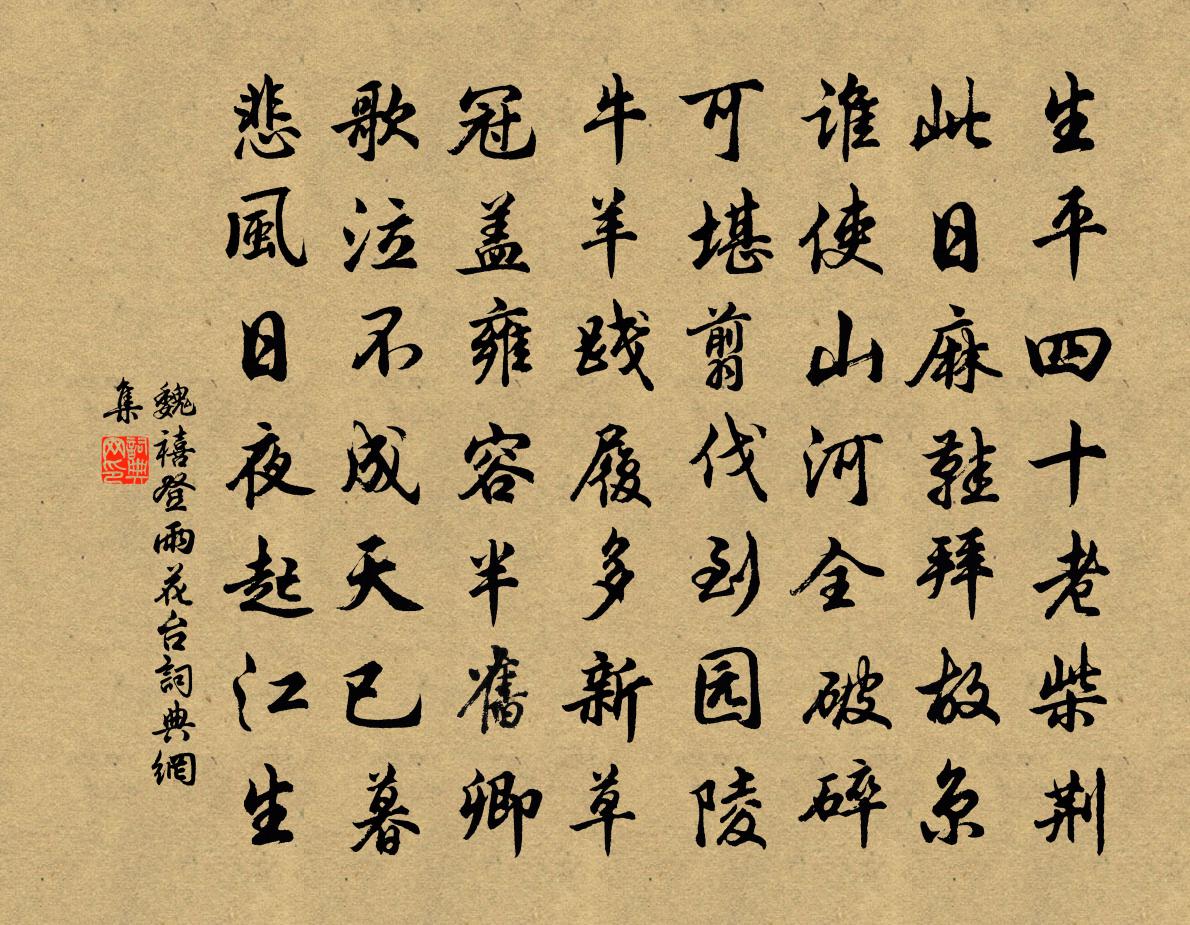 生平四十老柴荆
此日麻鞋拜故京
谁使山河全破碎
可堪剪伐到园陵
牛羊践履多新草
冠盖雍容半舊卿
歌泣不成天已暮
悲風日夜起江生
魏禧登雨花台詞典網
集
詞典
网印